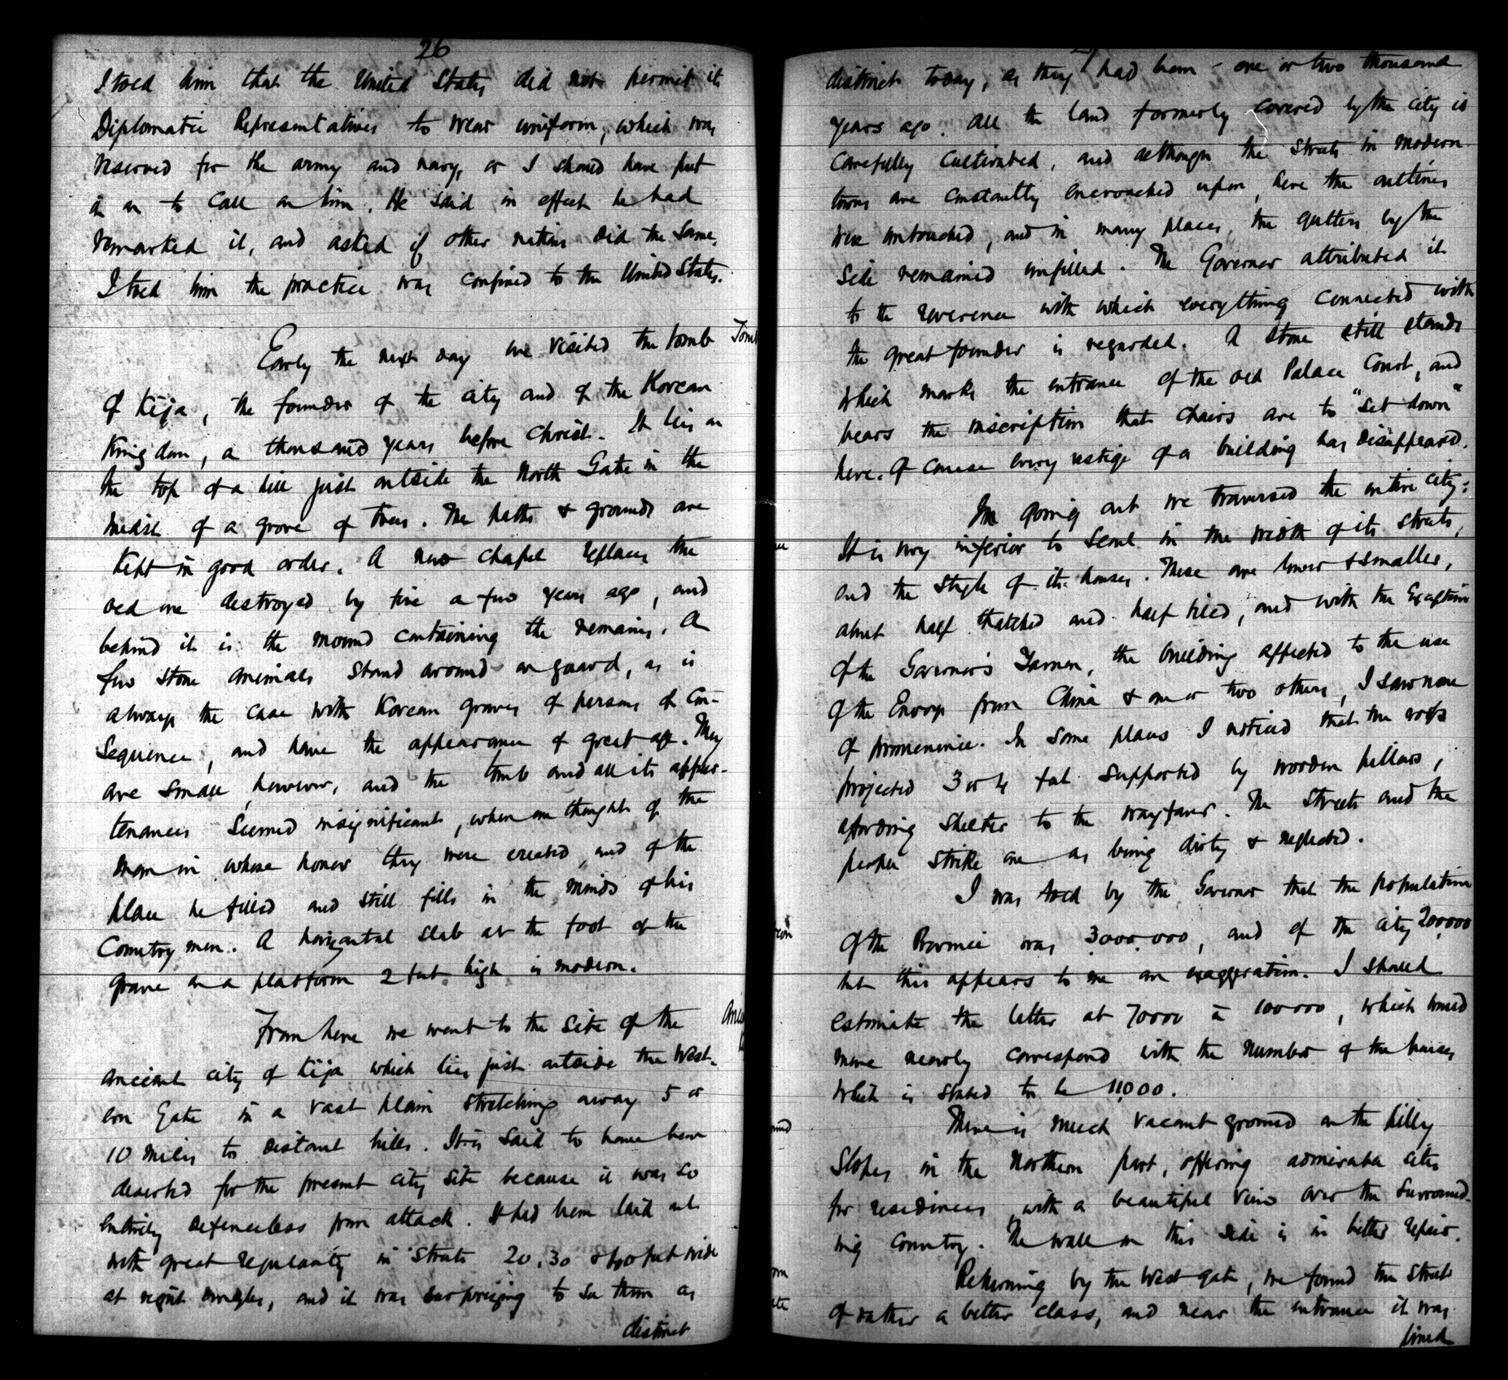 26
I told him that the United States did not permit its
Diplomatic Representatives to wear uniform, which was
reserved for the army and navy, or I should have put
it on to call on him. He said in effect he had
remarked it, and asked if other nations did the same.
I told him the practice was confined to the United States.
Early the next day we visited the tomb
Tomb
of Kija, the founder of the city and of the Korean
Kingdom, a thousand years before Christ. It lies on
the top of a hill just outside the North Gate in the
midst of a grove of trees. The paths & grounds are
kept in good order. A new chapel replaces the
old one destroyed by fire a few years ago, and
behind it is the mound containing the remains. A
few stone animals stand around on guard, as is
always the case with Korean graves of persons of con-
sequence, and have the appearance of great age. They
are small, however, and the tomb and all its appur-
tenances seemed insignificant, when one thought of the
man in whose honor they were erected, and of the
place he filled and still fills in the minds of his
Countrymen. A horizontal slab at the foot of the
grave on a platform 2 feet high is modern.
From here we went to the site of the
ancient city of Kija which lies just outside the West-
ern Gate in a vast plain stretching away 5 or
10 miles to distant hills. It is said to have been
deserted for the present city site because it was so
entirely defenceless from attack. It had been laid out
with great regularity in streets 20, 30 & 40 feet wide
at right angles, and it was surprising to see them as
distinct
distinct today, as they had been - one or two thousand
years ago. All the land formerly covered by the city is
carefully cultivated, and although the streets in modern
towns are constantly encroached upon, here the outlines
were untouched, and in many places, the gutters by the
side remained unfilled. The Governor attributed it
to the reverence with which everything connected with
the great founder is regarded. A stone still stands
which marks the entrance of the old Palace Court, and
bears the inscription that chairs are to "set down"
here. Of course every vestige of a building has disappeared.
In going out we traversed the entire city:
It is very inferior to Seoul in the width of its streets,
and the style of its houses. These are lower & smaller,
about half thatched and half tiled, and with the exception
of the Governor's Yamen, the building affected to the use
of the Envoys from China & one or two others, I saw none
of prominence. In some places I noticed that the roofs
projected 3 or 4 feet supported by wooden pillars,
affording shelter to the wayfarer. The streets and the
people strike one as being dirty & neglected.
I was told by the Governor that the population
of the Province was 3,000,000, and of the city 200,000
but this appears to me an exaggeration. I should
estimate the latter at 70000 à 100000, which would
more nearly correspond with the number of the houses
which is stated to be 11000.
There is much vacant ground on the hilly
slopes in the Northern part, offering admirable sites
for residences with a beautiful view over the surround-
ing country. The wall on this side is in better repair.
Returning by the West gate, we found the streets
of rather a better class, and near the entrance it was
lined